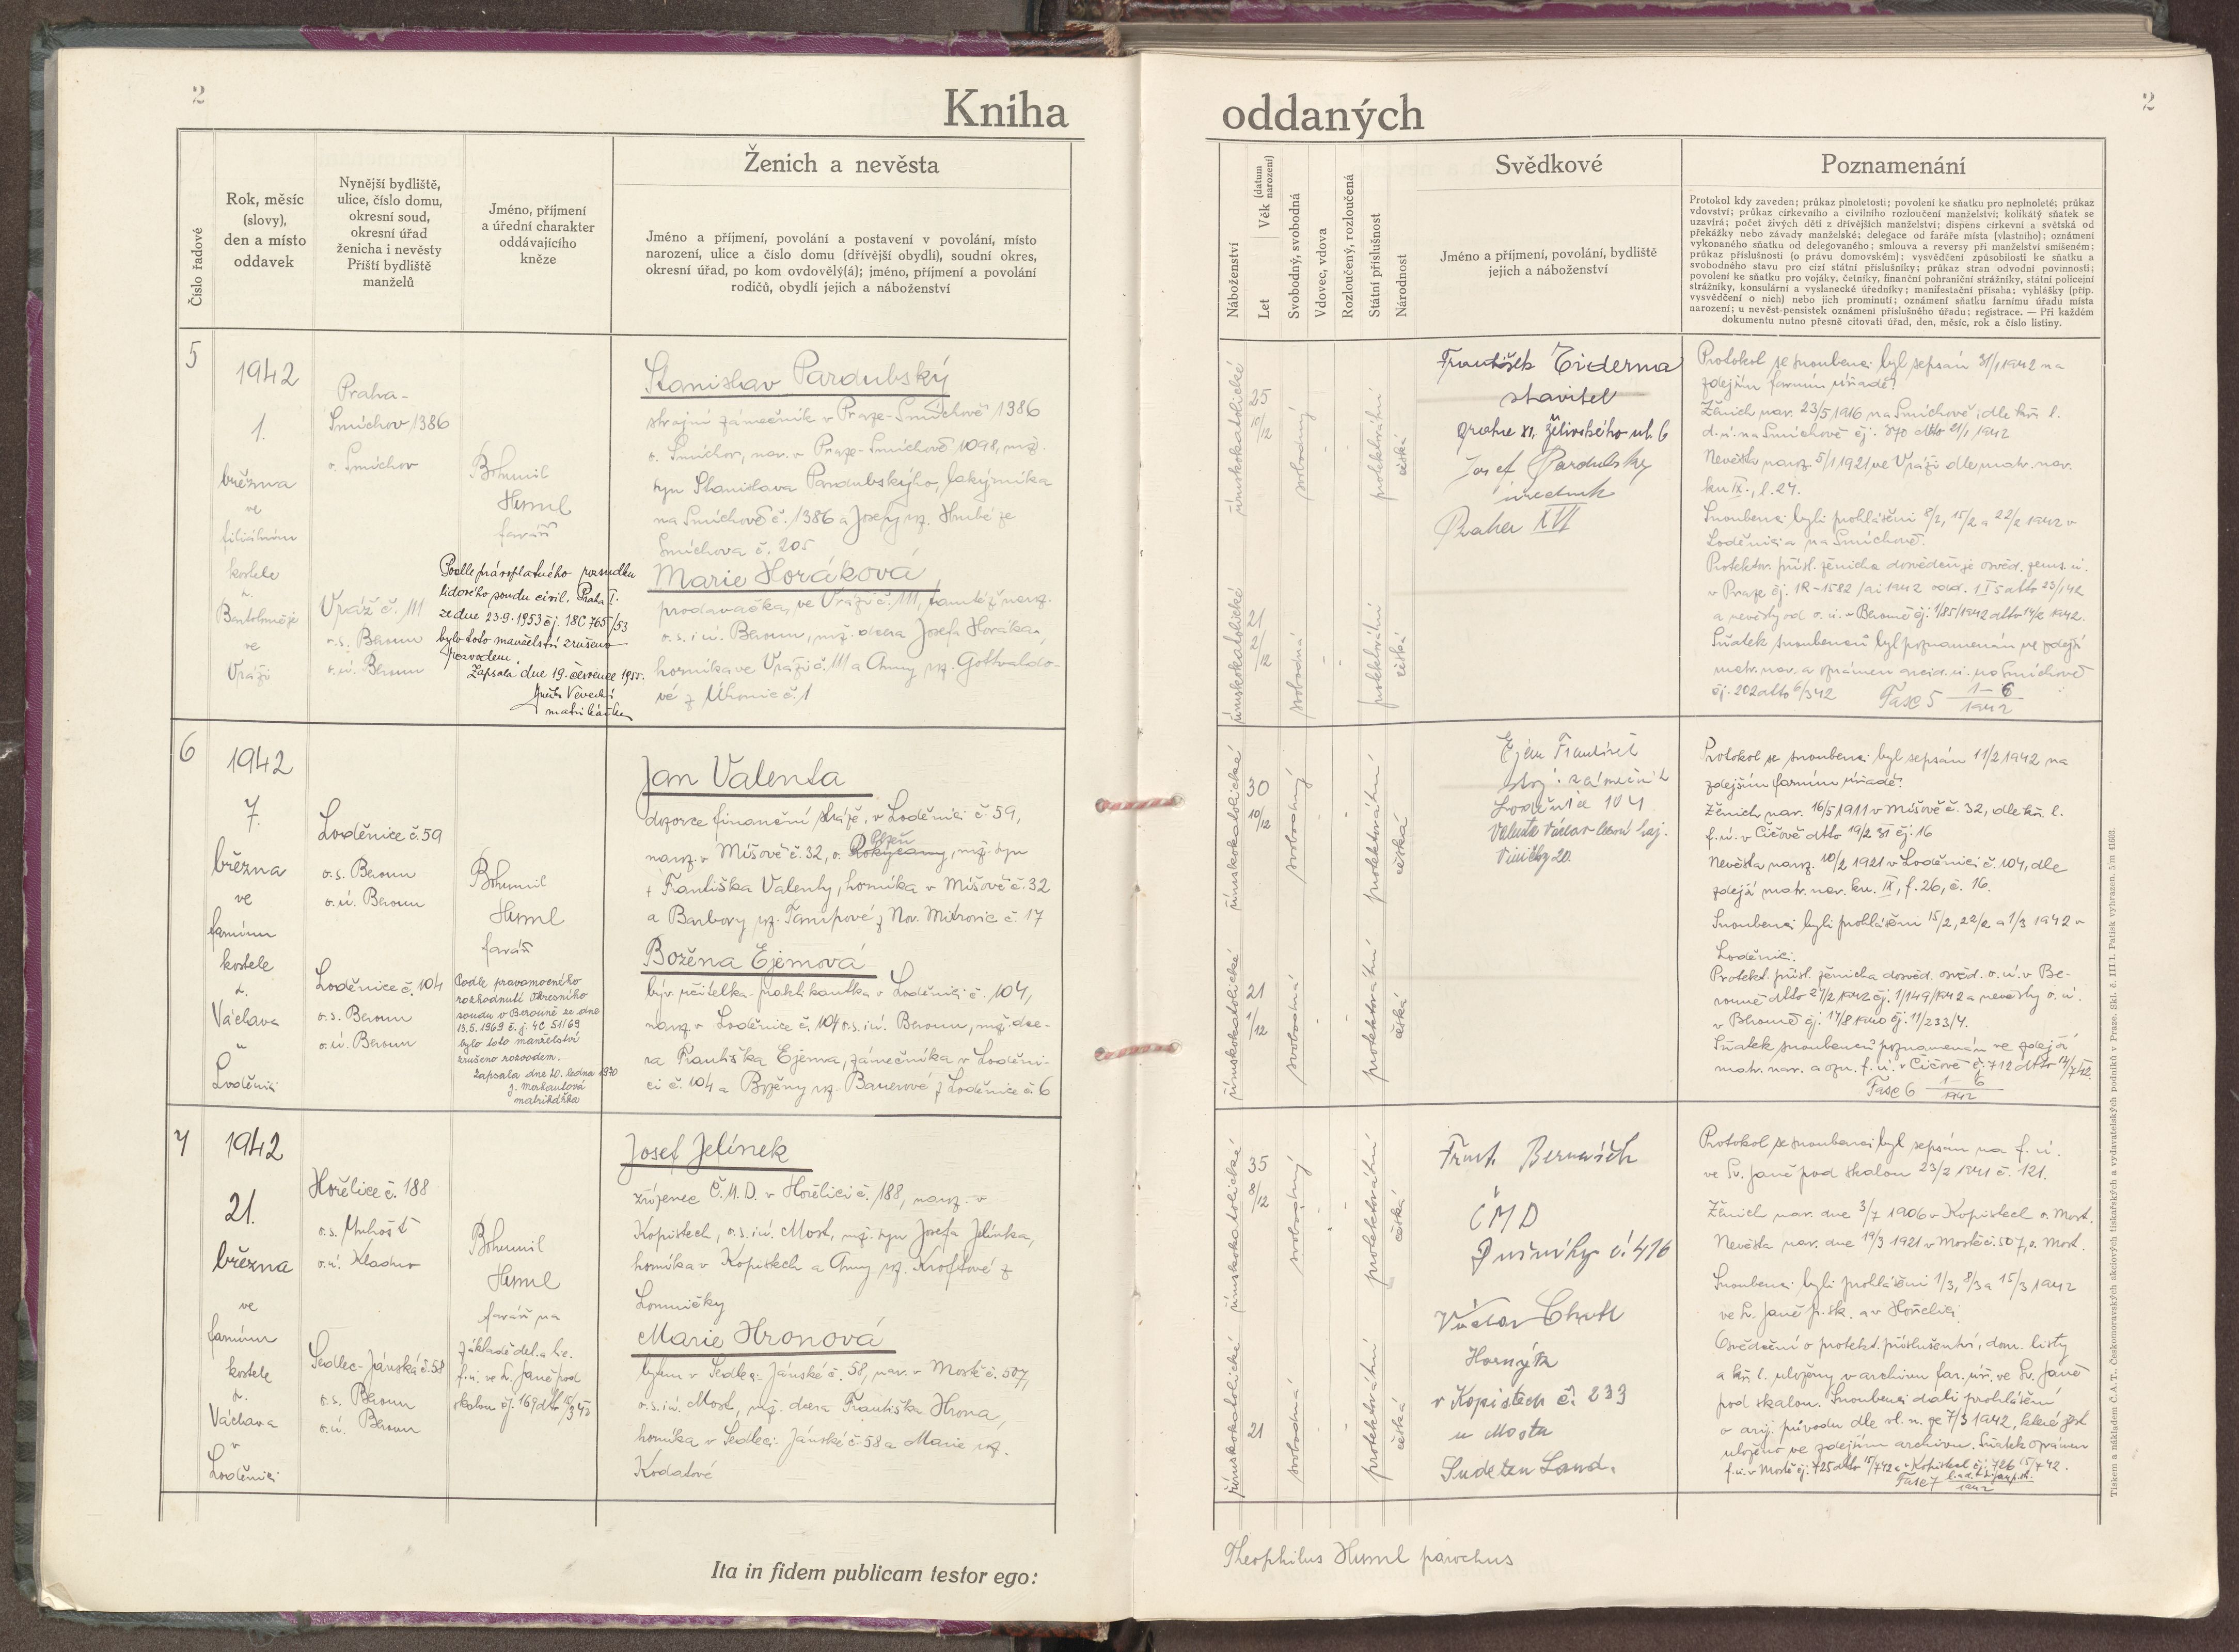 2
Kniha
Číslo řadové
Rok, měsíc
(slovy),
den a místo
oddavek
Nynější bydliště,
ulice, číslo domu,
okresní soud,
okresní úřad
ženicha i nevěsty
Příští bydliště
manželů
Jméno, příjmení
a úřední charakter
oddávajícího
kněze
Ženich a nevěsta
Jméno a příjmení, povolání a postavení v povolání, místo
narození, ulice a číslo domu (dřívější obydlí), soudní okres,
okresní úřad, po kom ovdovělý(á); jméno, příjmení a povolání
rodičů, obydlí jejich a náboženství
5
1942
1.
března
ve
filiálním
kostele
sv.
Bartoloměje
ve
Vráži
Praha-
Smíchov 1386
o. Smíchov
Vráž č. 111
o.s. Beroun
o.ú. Beroun
Bohumil
Huml
farář
Podle právoplatného rozsudku
lidového soudu civil. Praha I.
ze dne 23.9.1953 čj. 18C 765/53
bylo toto manželství zrušeno
rozvodem.
Zapsala dne 19. července 1955.
matrikářka
Stanislav Pardubský
strojní zámečník v Praze-Smíchově 1386
o. Smíchov, nar. v Praze-Smíchově 1098, mž.
syn Stanislava Pardubskýho, lakýrníka
na Smíchově č. 1386 a Josefy roz. Hrubé ze
Smíchova č. 205
Marie Horáková
prodavačka, ve Vráži č. 111, tamtéž naroz.
o.s. i ú. Beroun, mž. dcera Josefa Horáka,
horníka ve Vráži č. 111 a Anny roz. Gottvaldo-
vé z Mhonic č. 1
6
1942
7.
března
ve
farním
kostele
sv.
Václava
v
Loděnici
Loděnice č. 59
o.s. Beroun
o.ú. Beroun
Loděnice č. 104
o.s. Beroun
o.ú. Beroun
Bohumil
Huml
farář
Podle pravomocného
rozhodnutí Okresního
soudu v Berouně ze dne
13.5.1969 č.j. 4C 51/69
bylo toto manželství
zrušeno rozvodem.
Zapsala dne 20. ledna 1970
matrikářka
Jan Valenta
dozorce finanční stráže, v Loděnici č. 59,
Plzeň
naroz. v Míšově č. 32, o. Rokycany, mž. syn
+ Františka Valenty, horníka v Míšově č. 32
a Barbory roz. Tampové z Nov. Mitrovic č. 17
Božena Ejemová
býv. učitelka-praktikantka v Loděnici č. 104,
naroz. v Loděnice č. 104 o.s. i ú. Beroun, mž. dce-
ra Františka Ejema, zámečníka v Loděni-
ci č. 104 a Boženy roz. Bauerové z Loděnice č. 6
7
1942
21.
března
ve
farním
kostele
sv.
Václava
v
Loděnici
Hořelice č. 188
o.s. Unhošť
o.ú. Kladno
Sedlec-Jánská č. 58
o.s. Beroun
o.ú. Beroun
Bohumil
Huml
farář na
základě del. a lic.
f.ú. ve sv. Janě pod
skalou čj. 169 dto
Josef Jelínek
zřízenec Č.M.D. v Hořelici č. 188, naroz. v
Kopistech, o.s. i ú. Most, mž. syn Josefa Jelínka,
horníka v Kopistech a Anny roz. Kroftové z
Lomničky
Marie Hronová
bytem v Sedlec-Jánské č. 58, nar. v Mostě č. 507,
o.s. i ú. Most, mž. dcera Františka Hrona,
horníka v Sedleci-Jánské č. 58 a Marie roz.
Kodatové
Ita in fidem publicam testor ego:
2
oddaných
Náboženství
Let
Věk (datum narození)
Svobodný, svobodná
Vdovec, vdova
Rozloučený, rozloučená
Státní příslušnost
Národnost
Svědkové
Jméno a příjmení, povolání, bydliště
jejich a náboženství
Poznamenání
Protokol kdy zaveden; průkaz plnoletosti; povolení ke sňatku pro neplnoleté; průkaz
vdovství; průkaz církevního a civilního rozloučení manželství; kolikátý sňatek se
uzavírá; počet živých dětí z dřívějších manželství; dispens církevní a světská od
překážky nebo závady manželské; delegace od faráře místa (vlastního); oznámení
vykonaného sňatku od delegovaného; smlouva a reversy při manželství smíšeném;
průkaz příslušnosti (o právu domovském); vysvědčení způsobilosti ke sňatku a
svobodného stavu pro cizí státní příslušníky; průkaz stran odvodní povinnosti;
povolení ke sňatku pro vojáky, četníky, finanční pohraniční strážníky, státní policejní
strážníky, konsulární a vyslanecké úředníky; manifestační přísaha; vyhlášky (příp.
vysvědčení o nich) nebo jich prominutí; oznámení sňatku farnímu úřadu místa
narození; u nevěst-pensistek oznámení příslušného úřadu; registrace. — Při každém
dokumentu nutno přesně citovati úřad, den, měsíc, rok a číslo listiny.
římskokatolické
25
10/12
svobodný
protektorátní
česká
římskokatolické
21
2/12
svobodná
protektorátní
česká
František
stavitel
Praha XI. Želivského ul. 6
Josef Pardubský
úředník
Praha XVI
Protokol se snoubenci byl sepsán 31/1 1942 na
zdejším farním úřadě.
Ženich nar. 23/5 1916 na Smíchově, dle kř. l.
d.ú. na Smíchově čj. 870 dtto 21/1 1942
Nevěsta naroz. 5/1 1921 ve Vráži dle matr. nar.
kn IX., l. 24.
Snoubenci byli prohlášeni 8/2, 15/2 a 22/2 1942 v
Loděnici a na Smíchově.
Protektor. přísl. ženicha dosvědčuje osvěd. zems. ú.
v Praze čj. 1R-1582/ai 1942 odd. 1 I 5 dtto 23/1 42
a nevěsty od o.ú. v Berouně čj. 1/85/1942 dtto 14/2 1942.
Sňatek snoubenců byl poznamenán ve zdejší
matr. nar. a oznámen arcid. ú. na Smíchově
čj. 202 dtto 6/3 42
Fasc 5 1-6
1942
římskokatolické
30
10/12
svobodný
protektorátní
česká
římskokatolické
21
1/12
svobodná
protektorátní
česká
Ejem František
stroj. zámečník
Loděnice 104
Valenta Václav lesní haj.
20.
Protokol se snoubenci byl sepsán 11/2 1942 na
zdejším farním úřadě.
Ženich nar. 16/5 1911 v Míšově č. 32, dle kř. l.
f.ú. v Čičově dtto 19/2 31 čj. 16
Nevěsta naroz. 10/2 1921 v Loděnici č. 104, dle
zdejší matr. nar. kn. IX, f. 26, č. 16.
Snoubenci byli prohlášeni 15/2, 22/2 a 1/3 1942 v
Loděnici.
Protekt. přísl. ženicha dosvěd. osvěd. o.ú. v Be-
rouně dtto 27/2 1942 čj. 1/149/1942 a nevěsty o.ú.
v Berouně čj. 17/8 1940 čj. 11/233/4.
Sňatek snoubenců poznamenán ve zdejší
matr. nar. a ozn. f.ú. v Čičově čj. 712 dtto
Fasc 6 1-6
1942
římskokatolické
35
8/12
svobodný
protektorátní
česká
římskokatolické
21
svobodná
protektorátní
česká
Frant.
ČMD
Dušníky č. 416
Václav
Horník
v Kopistech č. 233
u Mostu
Sudeten Land.
Protokol se snoubenci byl sepsán na f.ú.
ve Sv. Janě pod skalou 23/2 1941 č. 121.
Ženich nar. dne 3/7 1906 v Kopistech o. Most.
Nevěsta nar. dne 19/3 1921 v Mostě č. 507, o. Most.
Snoubenci byli prohlášeni 1/3, 8/3 a 15/3 1942
ve Sv. Janě p. sk. a v Hořelici
Osvědčení o protekt. příslušenství, dom. listy
a kř. l. uloženy v archivu far. úř. ve Sv. Janě
pod skalou. Snoubenci dali prohlášení
o arij. původu dle vl. n. ze 7/3 1942, které jest
uloženo ve zdejším archivu. Sňatek oznámen
f.ú. v Mostě čj. 725 dtto 15/7 42 a v Kopistech čj. 726 15/7 42.
Fasc 7
1942
Theophilus Huml parochus
Tiskem a nákladem Č. A. T., Českomoravských akciových tiskařských a vydavatelských podniků v Praze. Skl. č. III/1. Patisk vyhrazen.